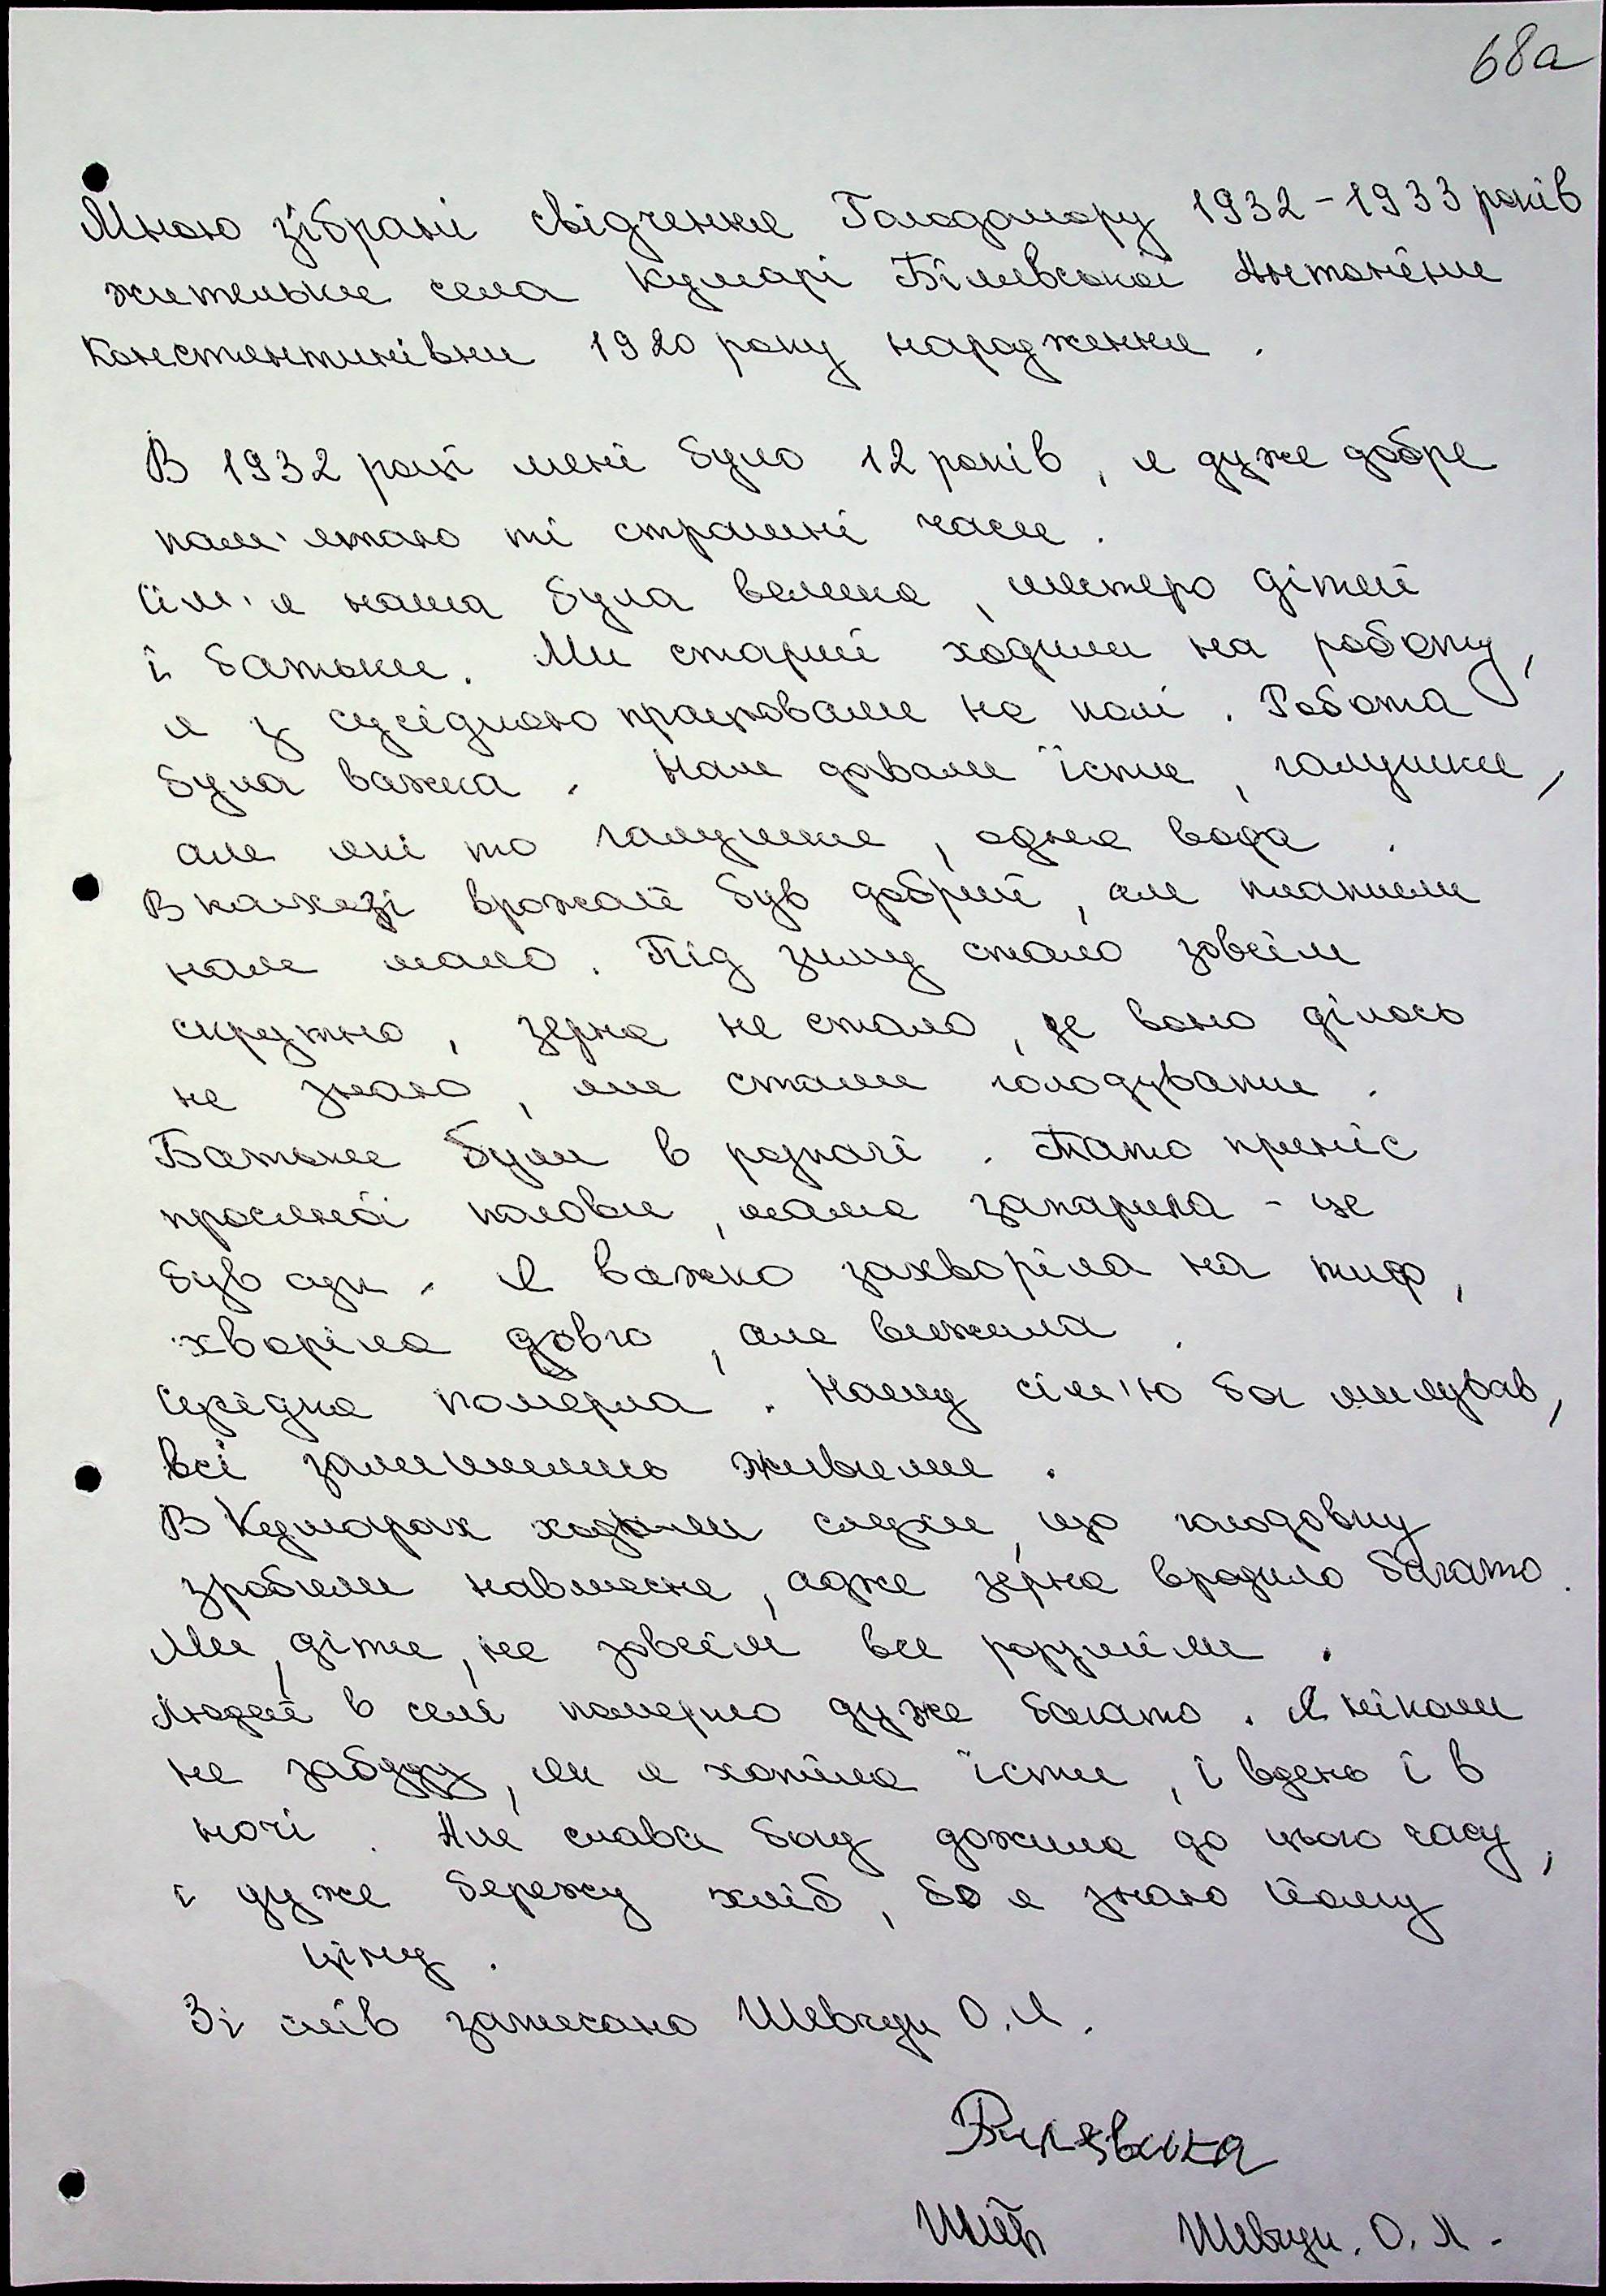 68а
Мною зібрані свідчення Голодомору 1932-1933 років
жительки села Кумарі Білявської Антоніни
Константинівни 1920 року народження.
В 1932 році мені було 12 років, я дуже добре
пам'ятаю ті страшні часи.
Сім'я наша була велика, шестеро дітей
і батьки. Ми старші ходили на роботу,
я з сусідкою працювали на полі. Робота
була важка. Нам давали їсти, галушки,
але які то галушки, одна вода.
В колхозі врожай був добрий, але платили
нам мало. Під зиму стало зовсім
скрутно, зерна не стало, де воно ділось
не знаю, ми стали голодувати.
Батьки були в розпачі. Тато приніс
просяної полови, мама запарила - це
був суп. Я важко захворіла на тиф,
хворіла довго, але вижила.
Сусідка померла. Нашу сім'ю бог милував,
всі залишились живими.
В Кумарах ходили слухи, що голодовку
зробили навмисне, адже зерна вродило багато.
Ми, діти, не зовсім все розуміли.
Людей в селі померло дуже багато. Я ніколи
не забуду, як я хотіла їсти, і вдень і в
ночі. Але слава богу дожила до цього часу,
і дуже бережу хліб, бо я знаю йому
ціну.
Зі слів записано Шевчук О.Л.
Билявська
Шевчук. О. Л.